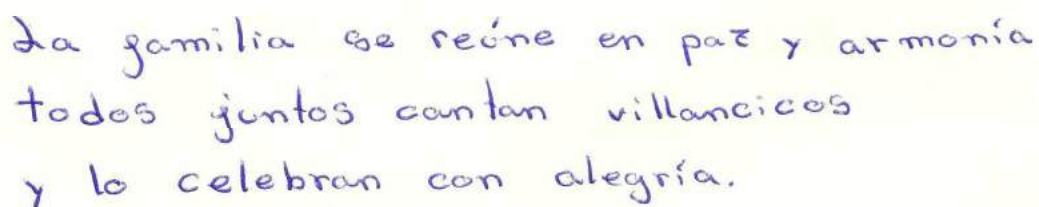 La familia se reúne en paz y armonía
todos juntos cantan villancicos
y lo celebran con alegría.